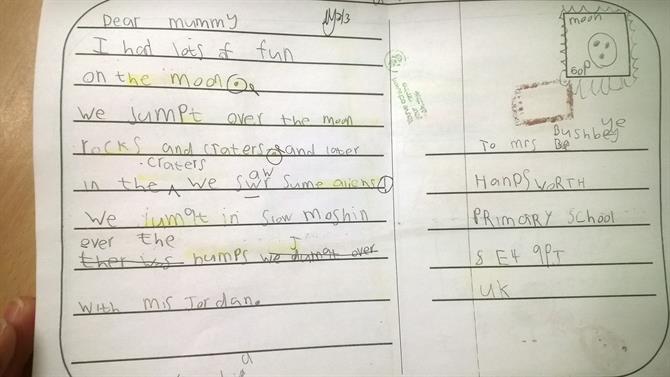 Dear mummy
I had lots of fun
on the moon.
We jumpt over the moon
rocks and craters. and later
craters
in the ^ We swr sume aliens.
aw
We jumpt in slow moshin
over the
ther is humps we dumpt over
J
With mis Jordan.
a
moon
60p
To mrs Be Bushbey
ye
HANDSWORTH
PRIMARY SCHOOL
E4 9PJ
UK